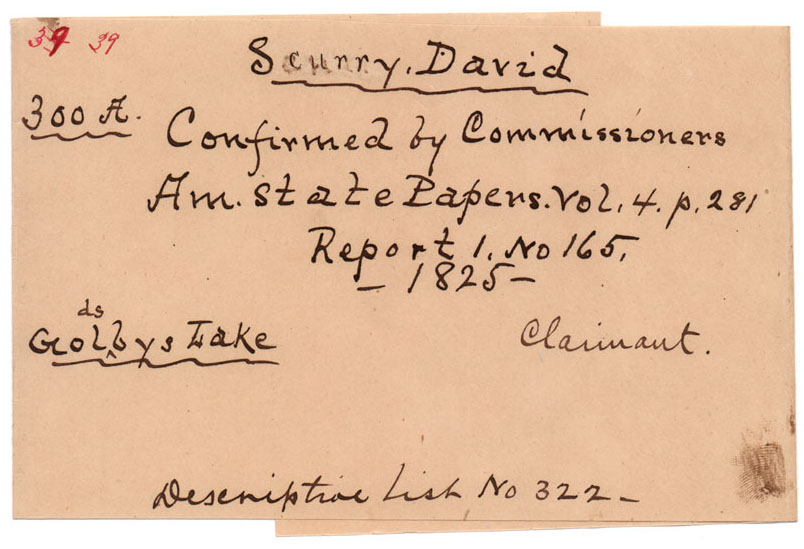 39 39
Scurry, David
300 A.
Confirmed by Commissioners
Am. State Papers. Vol. 4. p. 281
Report 1. No 165,
– 1825 –
ds
Golbys Lake
Claimant.
Descriptive List No 322 –